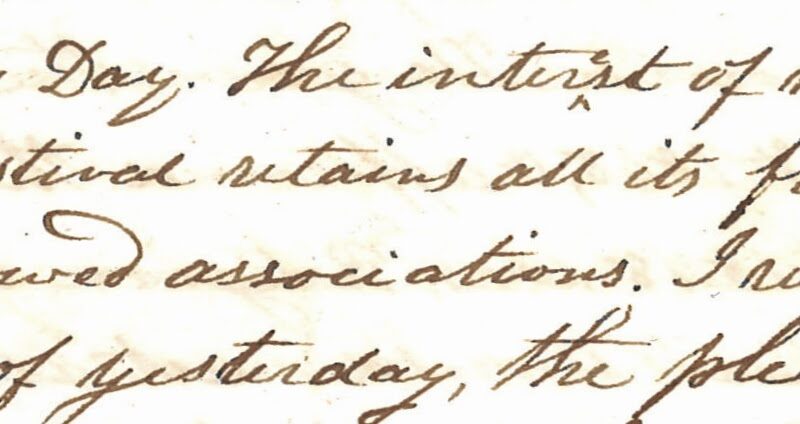 Day. The interest of
stival retains all its
wed associations. I
of yesterday, the ple